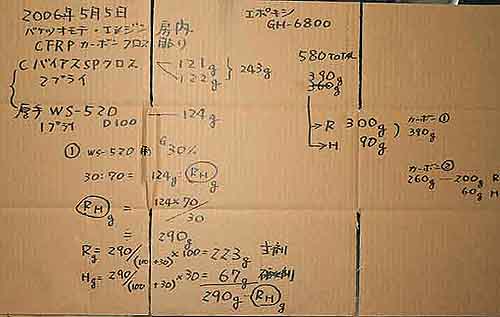 2006年5月5日
バケツオモテ・エンジン房内
CFRP カーボンクロス貼り
CバイアスSPクロス 121g
2プライ 122g } 243g
厚手 WS-520 124g
1プライ D100
① WS-520 G 30%
30:70 = 124g : RHg
RHg = 124×70/30
= 290g
Rg = 290/(100+30)×100 = 223g 主剤
Hg = 290/(100+30)×30 = 67g
290g RHg
エポキシ
GH-6800
580 TOTAL
390g
360g
→R 300g
→H 90g
カーボン①
390g
カーボン②
260g — 200g R
60g H